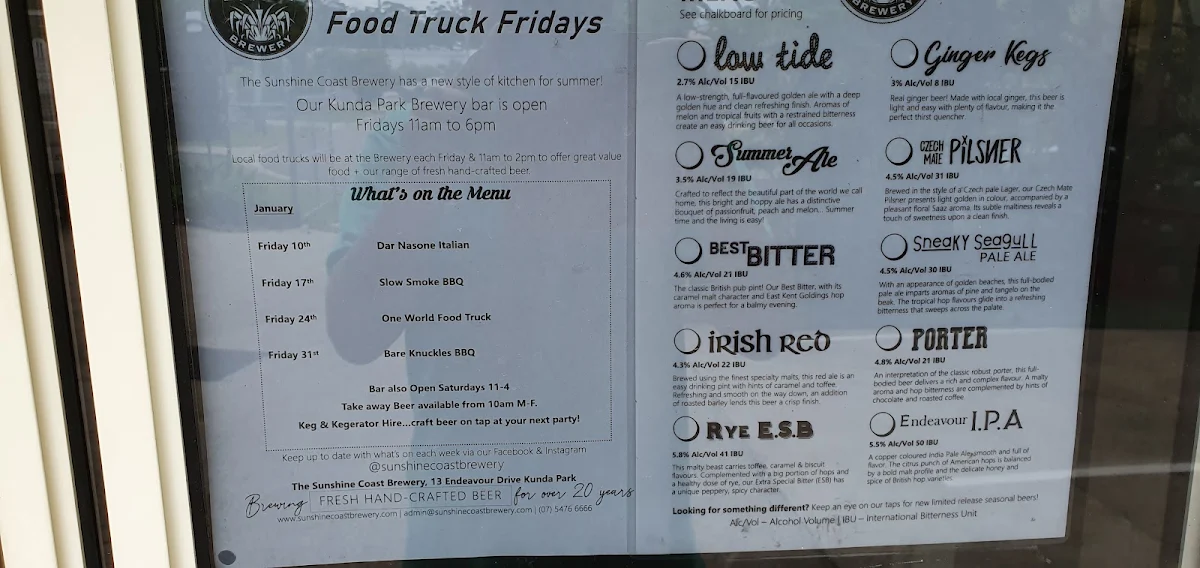 BREWERY
Food Truck Fridays
The Sunshine Coast Brewery has a new style of kitchen for summer!
Our Kunda Park Brewery bar is open
Fridays 11am to 6pm
Local food trucks will be at the Brewery each Friday & 11am to 2pm to offer great value
food + our range of fresh hand-crafted beer.
What's on the Menu
January
Friday 10th Dar Nasone Italian
Friday 17th Slow Smoke BBQ
Friday 24th One World Food Truck
Friday 31st Bare Knuckles BBQ
Bar also Open Saturdays 11-4
Take away Beer available from 10am M-F.
Keg & Kegerator Hire...craft beer on tap at your next party!
Keep up to date with what's on each week via our Facebook & Instagram
@sunshinecoastbrewery
The Sunshine Coast Brewery, 13 Endeavour Drive Kunda Park
Brewing FRESH HAND-CRAFTED BEER for over 20 years
www.sunshinecoastbrewery.com | admin@sunshinecoastbrewery.com | (07) 5476 6666
See chalkboard for pricing
BREWERY
low tide
2.7% Alc/Vol 15 IBU
A low-strength, full-flavoured golden ale with a deep
golden hue and clean refreshing finish. Aromas of
melon and tropical fruits with a restrained bitterness
create an easy drinking beer for all occasions.
Summer Ale
3.5% Alc/Vol 19 IBU
Crafted to reflect the beautiful part of the world we call
home, this bright and hoppy ale has a distinctive
bouquet of passionfruit, peach and melon... Summer
time and the living is easy!
BEST BITTER
4.6% Alc/Vol 21 IBU
The classic British pub pint! Our Best Bitter, with its
caramel malt character and East Kent Goldings hop
aroma is perfect for a balmy evening.
iRish ReD
4.3% Alc/Vol 22 IBU
Brewed using the finest specialty malts, this red ale is an
easy drinking pint with hints of caramel and toffee.
Refreshing and smooth on the way down, an addition
of roasted barley lends this beer a crisp finish.
RYE E.S.B
5.8% Alc/Vol 41 IBU
This malty beast carries toffee, caramel & biscuit
flavours. Complemented with a big portion of hops and
a healthy dose of rye, our Extra Special Bitter (ESB) has
a unique peppery, spicy character.
Ginger Kegs
3% Alc/Vol 8 IBU
Real ginger beer! Made with local ginger, this beer is
light and easy with plenty of flavour, making it the
perfect thirst quencher.
CZECH MATE PiLSNER
4.5% Alc/Vol 31 IBU
Brewed in the style of a Czech pale Lager, our Czech Mate
Pilsner presents light golden in colour, accompanied by a
pleasant floral Saaz aroma. Its subtle maltiness reveals a
touch of sweetness upon a clean finish.
SneaKY SeaguLL
PALE ALE
4.5% Alc/Vol 30 IBU
With an appearance of golden beaches, this full-bodied
pale ale imparts aromas of pine and tangelo on the
beak. The tropical hop flavours glide into a refreshing
bitterness that sweeps across the palate.
PORTER
4.8% Alc/Vol 21 IBU
An interpretation of the classic robust porter, this full-
bodied beer delivers a rich and complex flavour. A malty
aroma and hop bitterness are complemented by hints of
chocolate and roasted coffee.
Endeavour I.P.A
5.5% Alc/Vol 50 IBU
A copper coloured India Pale Ale, smooth and full of
flavor. The citrus punch of American hops is balanced
by a bold malt profile and the delicate honey and
spice of British hop varieties.
Looking for something different? Keep an eye on our taps for new limited release seasonal beers!
Alc/Vol – Alcohol Volume | IBU – International Bitterness Unit